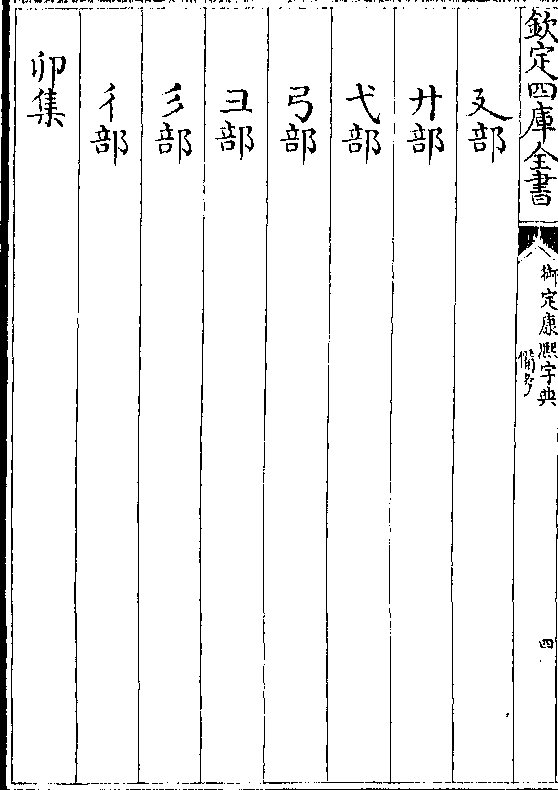 欽定四庫全書
御定康熙字典
備考
四
廴部
廾部
弋部
弓部
彐部
彡部
彳部
卯集